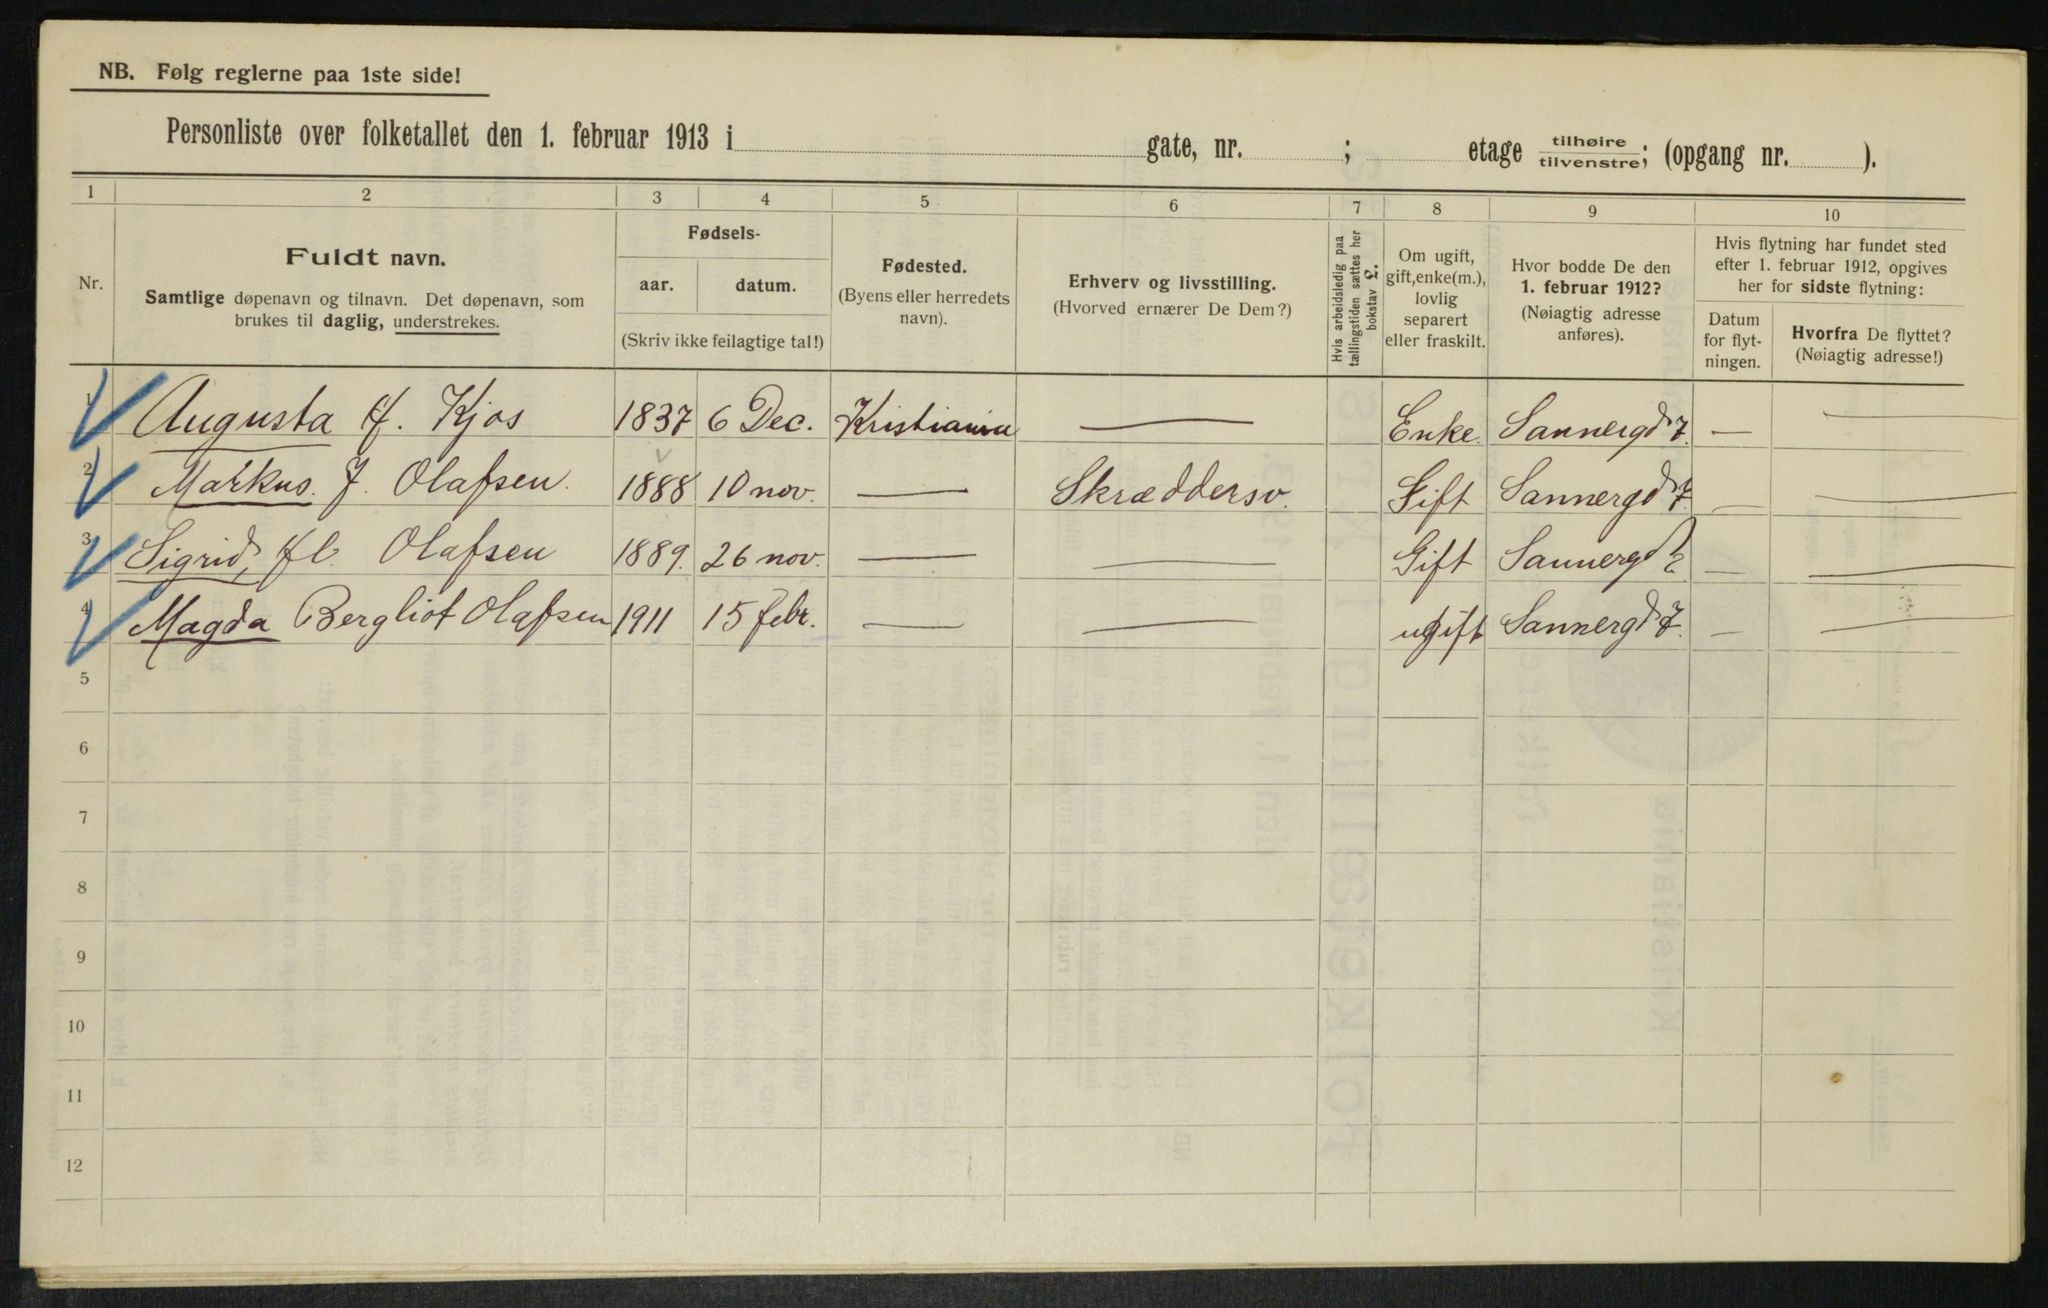 NB. Følg reglerne paa 1ste side!
Personliste over folketallet den 1. februar 1913 i gate, nr. ; etage tilhøire tilvenstre; (opgang nr. ).
1 2 3 4 5 6 7 8 9 10
Nr.
Fuldt navn.
Samtlige døpenavn og tilnavn. Det døpenavn, som
brukes til daglig, understrekes.
Fødsels-
aar. datum.
(Skriv ikke feilagtige tal!)
Fødested.
(Byens eller herredets
navn).
Erhverv og livsstilling.
(Hvorved ernærer De Dem?)
Hvis arbeidsledig paa
tællingstiden sættes her
bokstav L.
Om ugift,
gift, enke(m.),
lovlig
separert
eller fraskilt.
Hvor bodde De den
1. februar 1912?
(Nøiagtig adresse
anføres).
Hvis flytning har fundet sted
efter 1. februar 1912, opgives
her for sidste flytning:
Datum
for flyt-
ningen.
Hvorfra De flyttet?
(Nøiagtig adresse!)
1 Augusta H. Kjos 1837 6 Dec. Kristiania — Enke. Sannergd 7. — —
2 Markus. J. Olafsen. 1888 10 nov. — Skræddersv. Gift Sannergd 7. — —
3 Sigrid, Hl. Olafsen 1889. 26 nov. — — Gift Sannergd — —
4 Magda Bergliot Olafsen 1911 15 febr. — — ugift Sannergd 7. — —
5
6
7
8
9
10
11
12